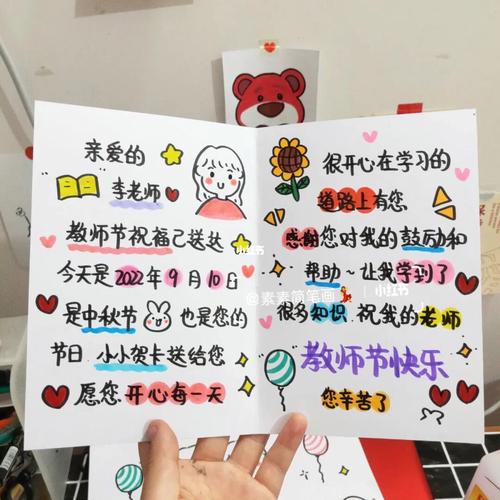 亲爱的
李老师
教师节祝福已送达
今天是2022年9月10日
是中秋节 也是您的
节日 小小贺卡送给您
愿您 开心每一天
很开心在学习的
道路上有您
感谢您对我的鼓励和
帮助~让我学到了
很多知识 祝我的老师
教师节快乐
您辛苦了
小红书
@素素简笔画
小红书